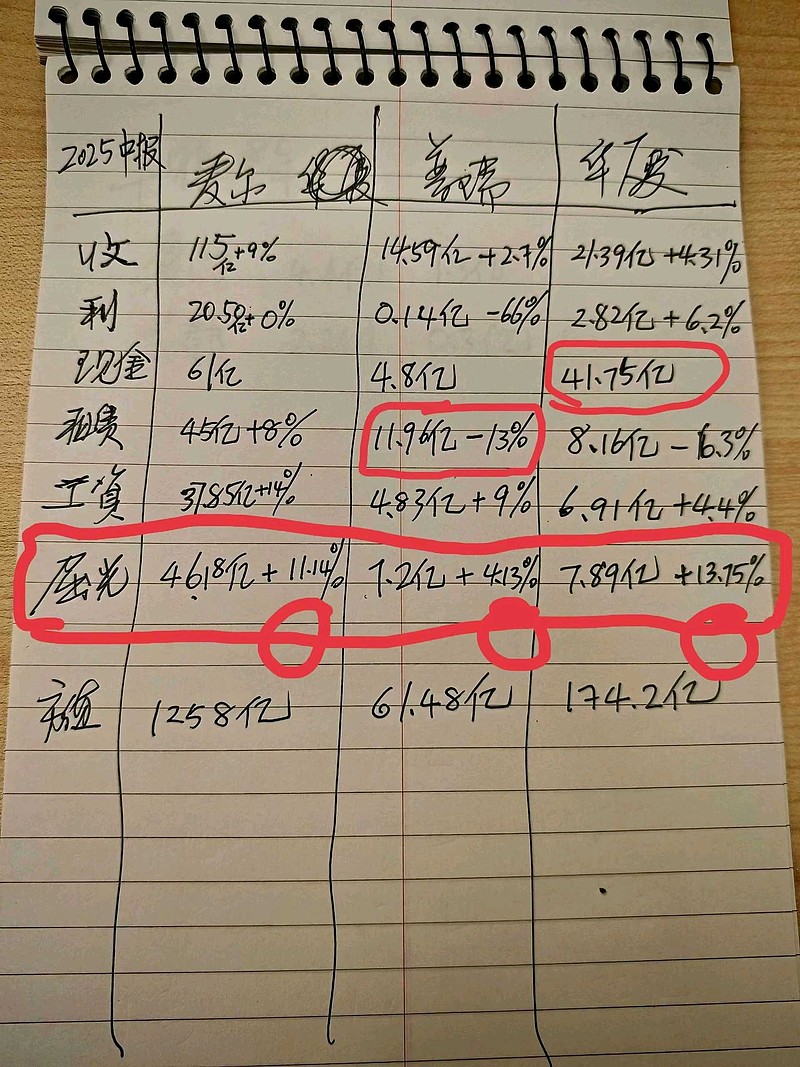 2025中报 麦尔 普瑞 华厦
收 115亿+9% 14.59亿+2.7% 21.39亿+4.31%
利 20.50亿+0% 0.14亿-66% 2.82亿+6.2%
现金 61亿 4.8亿 41.75亿
租赁 45亿+8% 11.96亿-13% 8.16亿-16.3%
工资 37.85亿+14% 4.83亿+9% 6.91亿+4.4%
屈光 46.18亿+11.14% 7.2亿+4.13% 7.89亿+13.75%
市值 1258亿 61.48亿 174.2亿